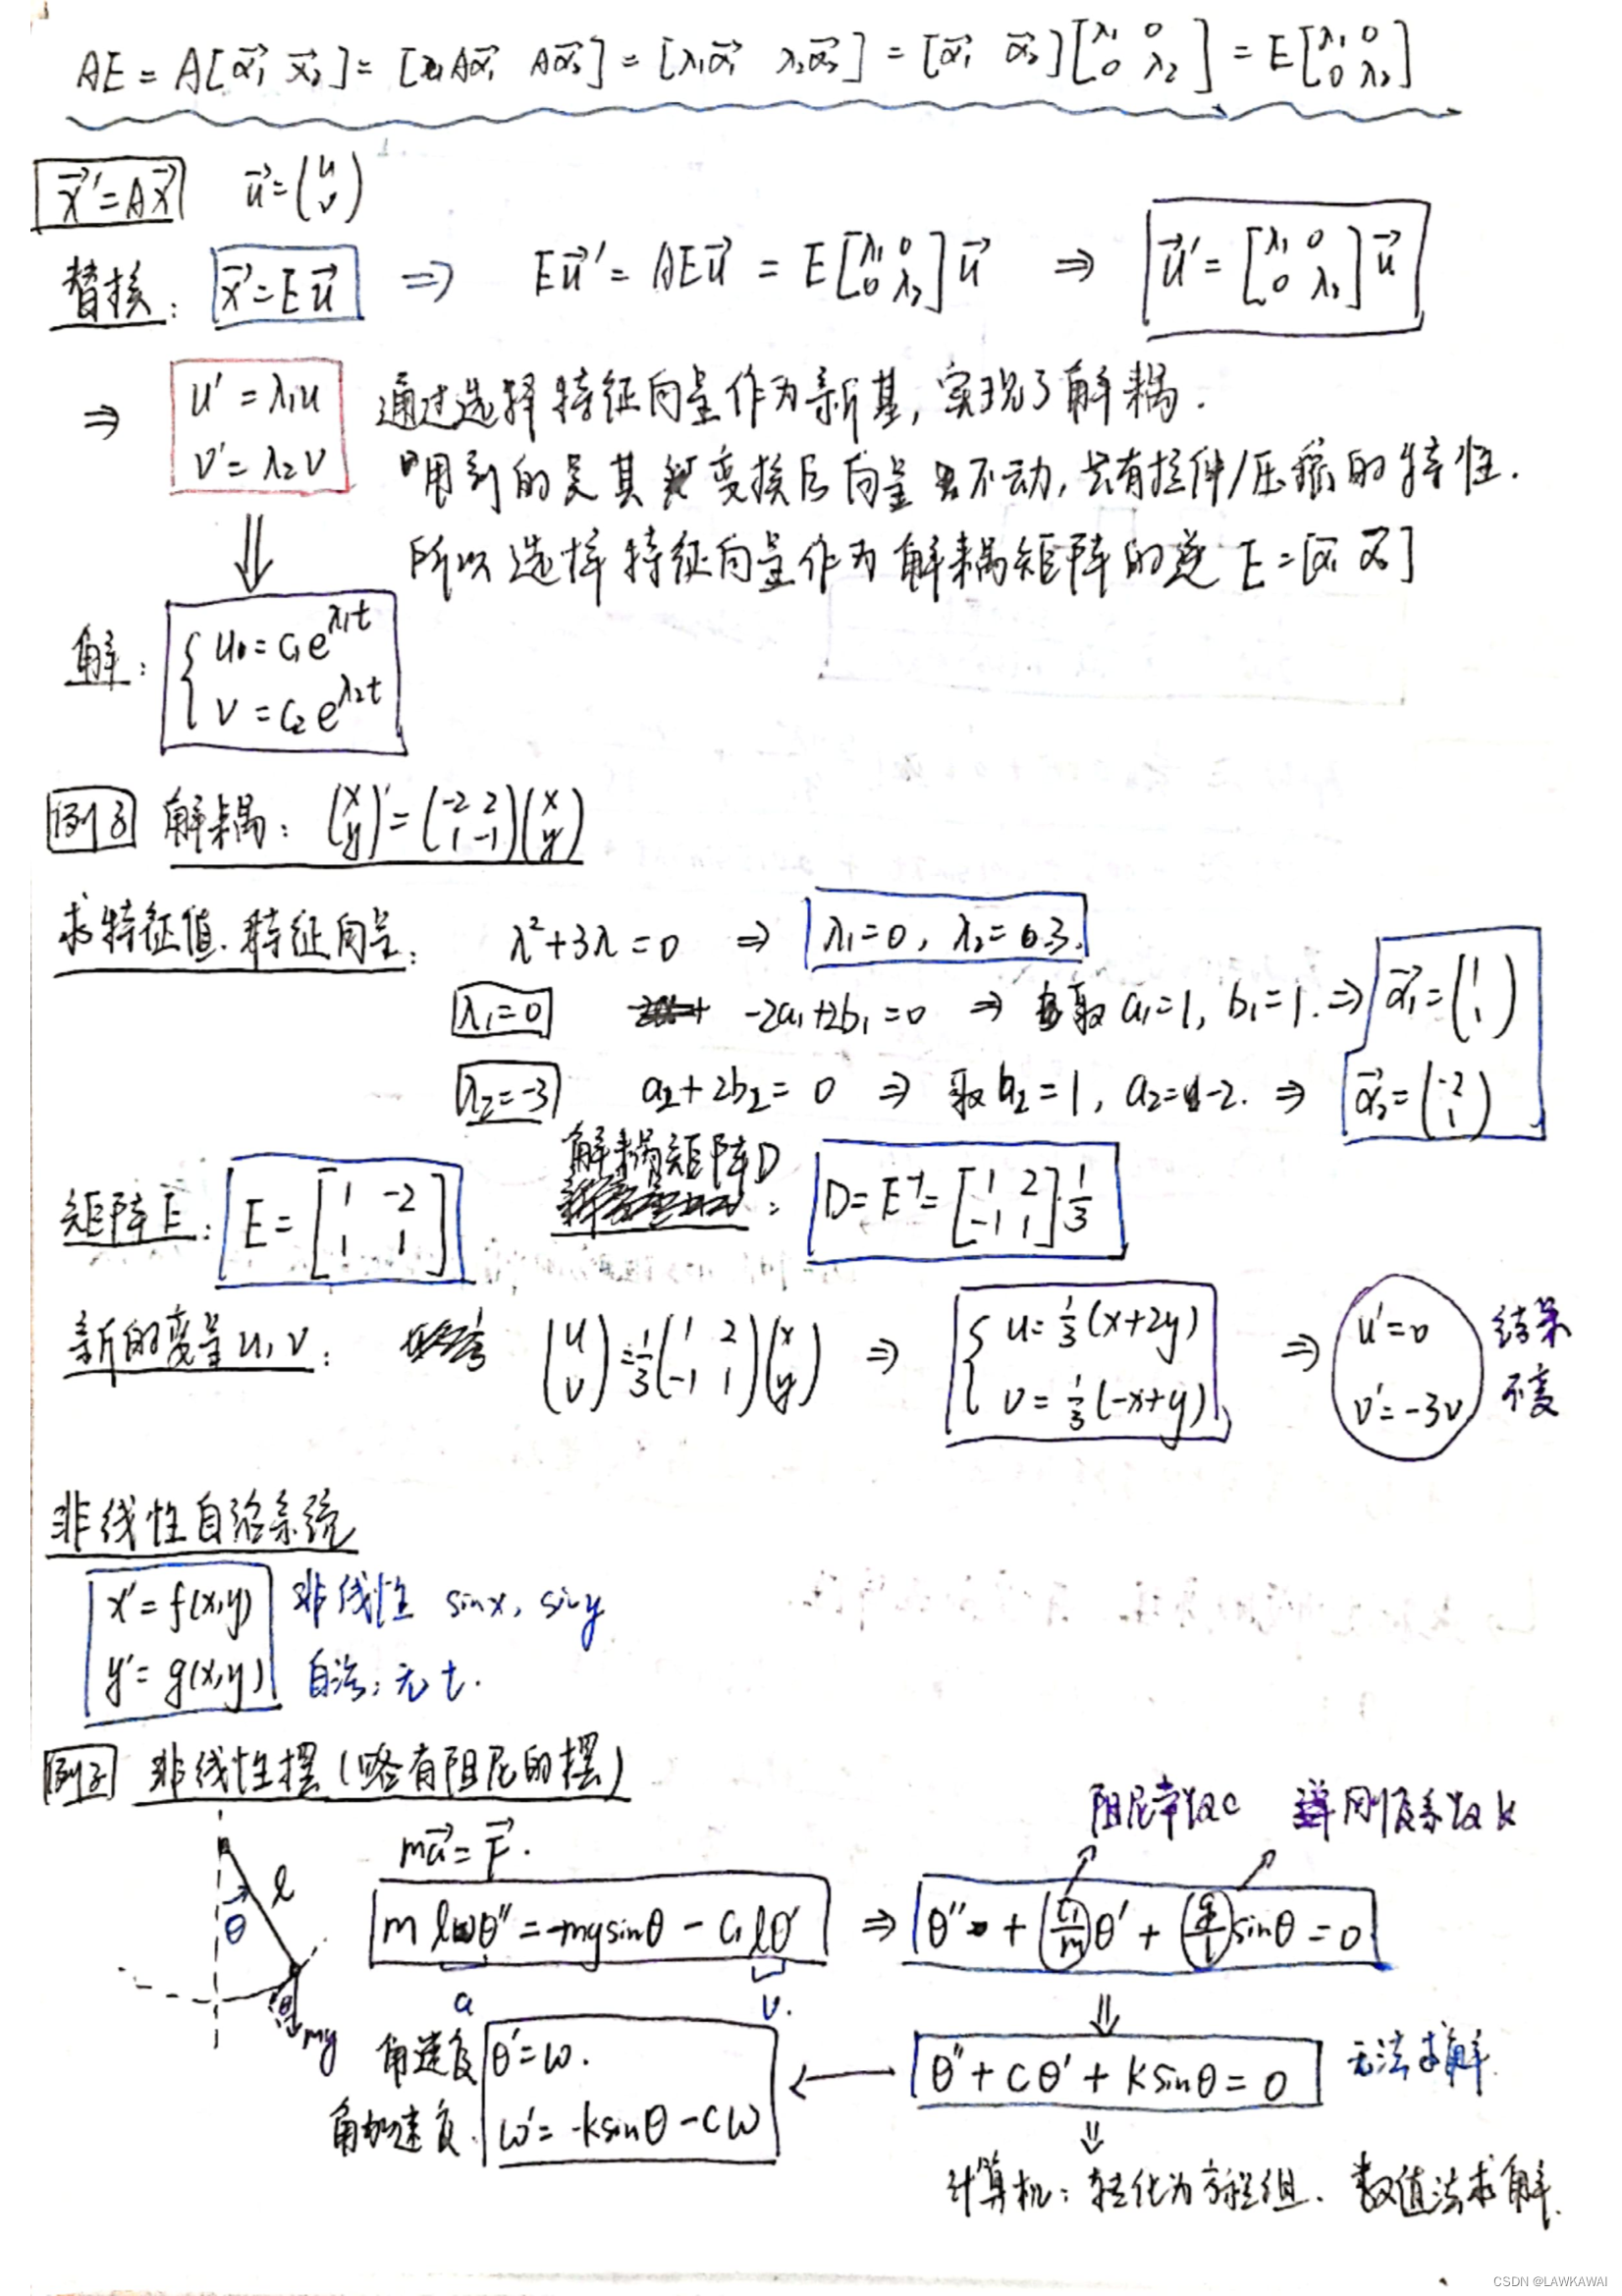 AE = A[α₁⃗ α₂⃗] = [Aα₁⃗ Aα₂⃗] = [λ₁α₁⃗ λ₂α₂⃗] = [α₁⃗ α₂⃗][λ₁ 0; 0 λ₂] = E[λ₁ 0; 0 λ₂]
x⃗' = Ax⃗ u⃗ = (u; v)
替换: x⃗ = Eu⃗ ⇒ Eu⃗' = AEu⃗ = E[λ₁ 0; 0 λ₂]u⃗ ⇒ u⃗' = [λ₁ 0; 0 λ₂]u⃗
⇒ u' = λ₁u 通过选择特征向量作为新基, 实现了解耦.
v' = λ₂v 用到的是其变换后向量不动, 只有拉伸/压缩的特性.
所以选择特征向量作为解耦矩阵的逆 E = [α₁⃗ α₂⃗]
解: { u = c₁e^{λ₁t}
v = c₂e^{λ₂t}
例子 解耦: (x; y)' = (-2 2; 1 -1)(x; y)
求特征值. 特征向量: λ²+3λ=0 ⇒ λ₁=0, λ₂=-3.
λ₁=0 -2a₁+2b₁=0 ⇒ 取 a₁=1, b₁=1. ⇒ α₁⃗ = (1; 1)
λ₂=-3 a₂+2b₂=0 ⇒ 取 b₂=1, a₂=-2. ⇒ α₂⃗ = (-2; 1)
解耦矩阵D
矩阵E: E = [1 -2; 1 1] : D = E⁻¹ = [1 2; -1 1]·1/3
新的变量 u, v: (u; v) = 1/3(1 2; -1 1)(x; y) ⇒ { u = 1/3(x+2y) ⇒ u'=0 结果
v = 1/3(-x+y) v'=-3v 不变
非线性自治系统
x' = f(x,y) 非线性 sinx, siny
y' = g(x,y) 自治: 无 t.
例子 非线性摆 (略有阻尼的摆)
阻尼常数c 刚度系数k
ma⃗ = F⃗.
l
θ
mlθ'' = -mgsinθ - C₁lθ' ⇒ θ'' + (c₁/m)θ' + (g/l)sinθ = 0
a v.
θ mg
角速度 θ' = ω. ← θ'' + cθ' + ksinθ = 0 无法求解.
角加速度. ω' = -ksinθ - cω
计算机: 转化为方程组. 数值法求解.
CSDN @LAWKAWAI